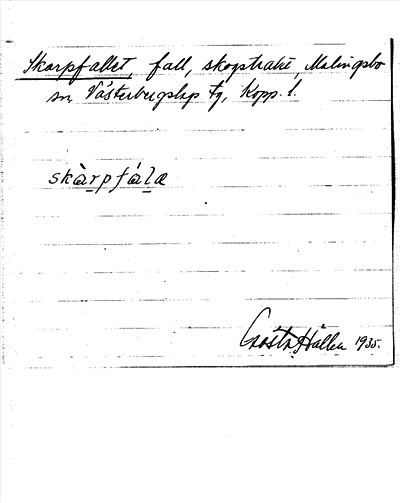 Skarpfallet, fall, skogstrakt, Malingsbo
sn, Västerbergslag tg, Kopp. l.
skàrpfála
Gösta Hallén 1935.